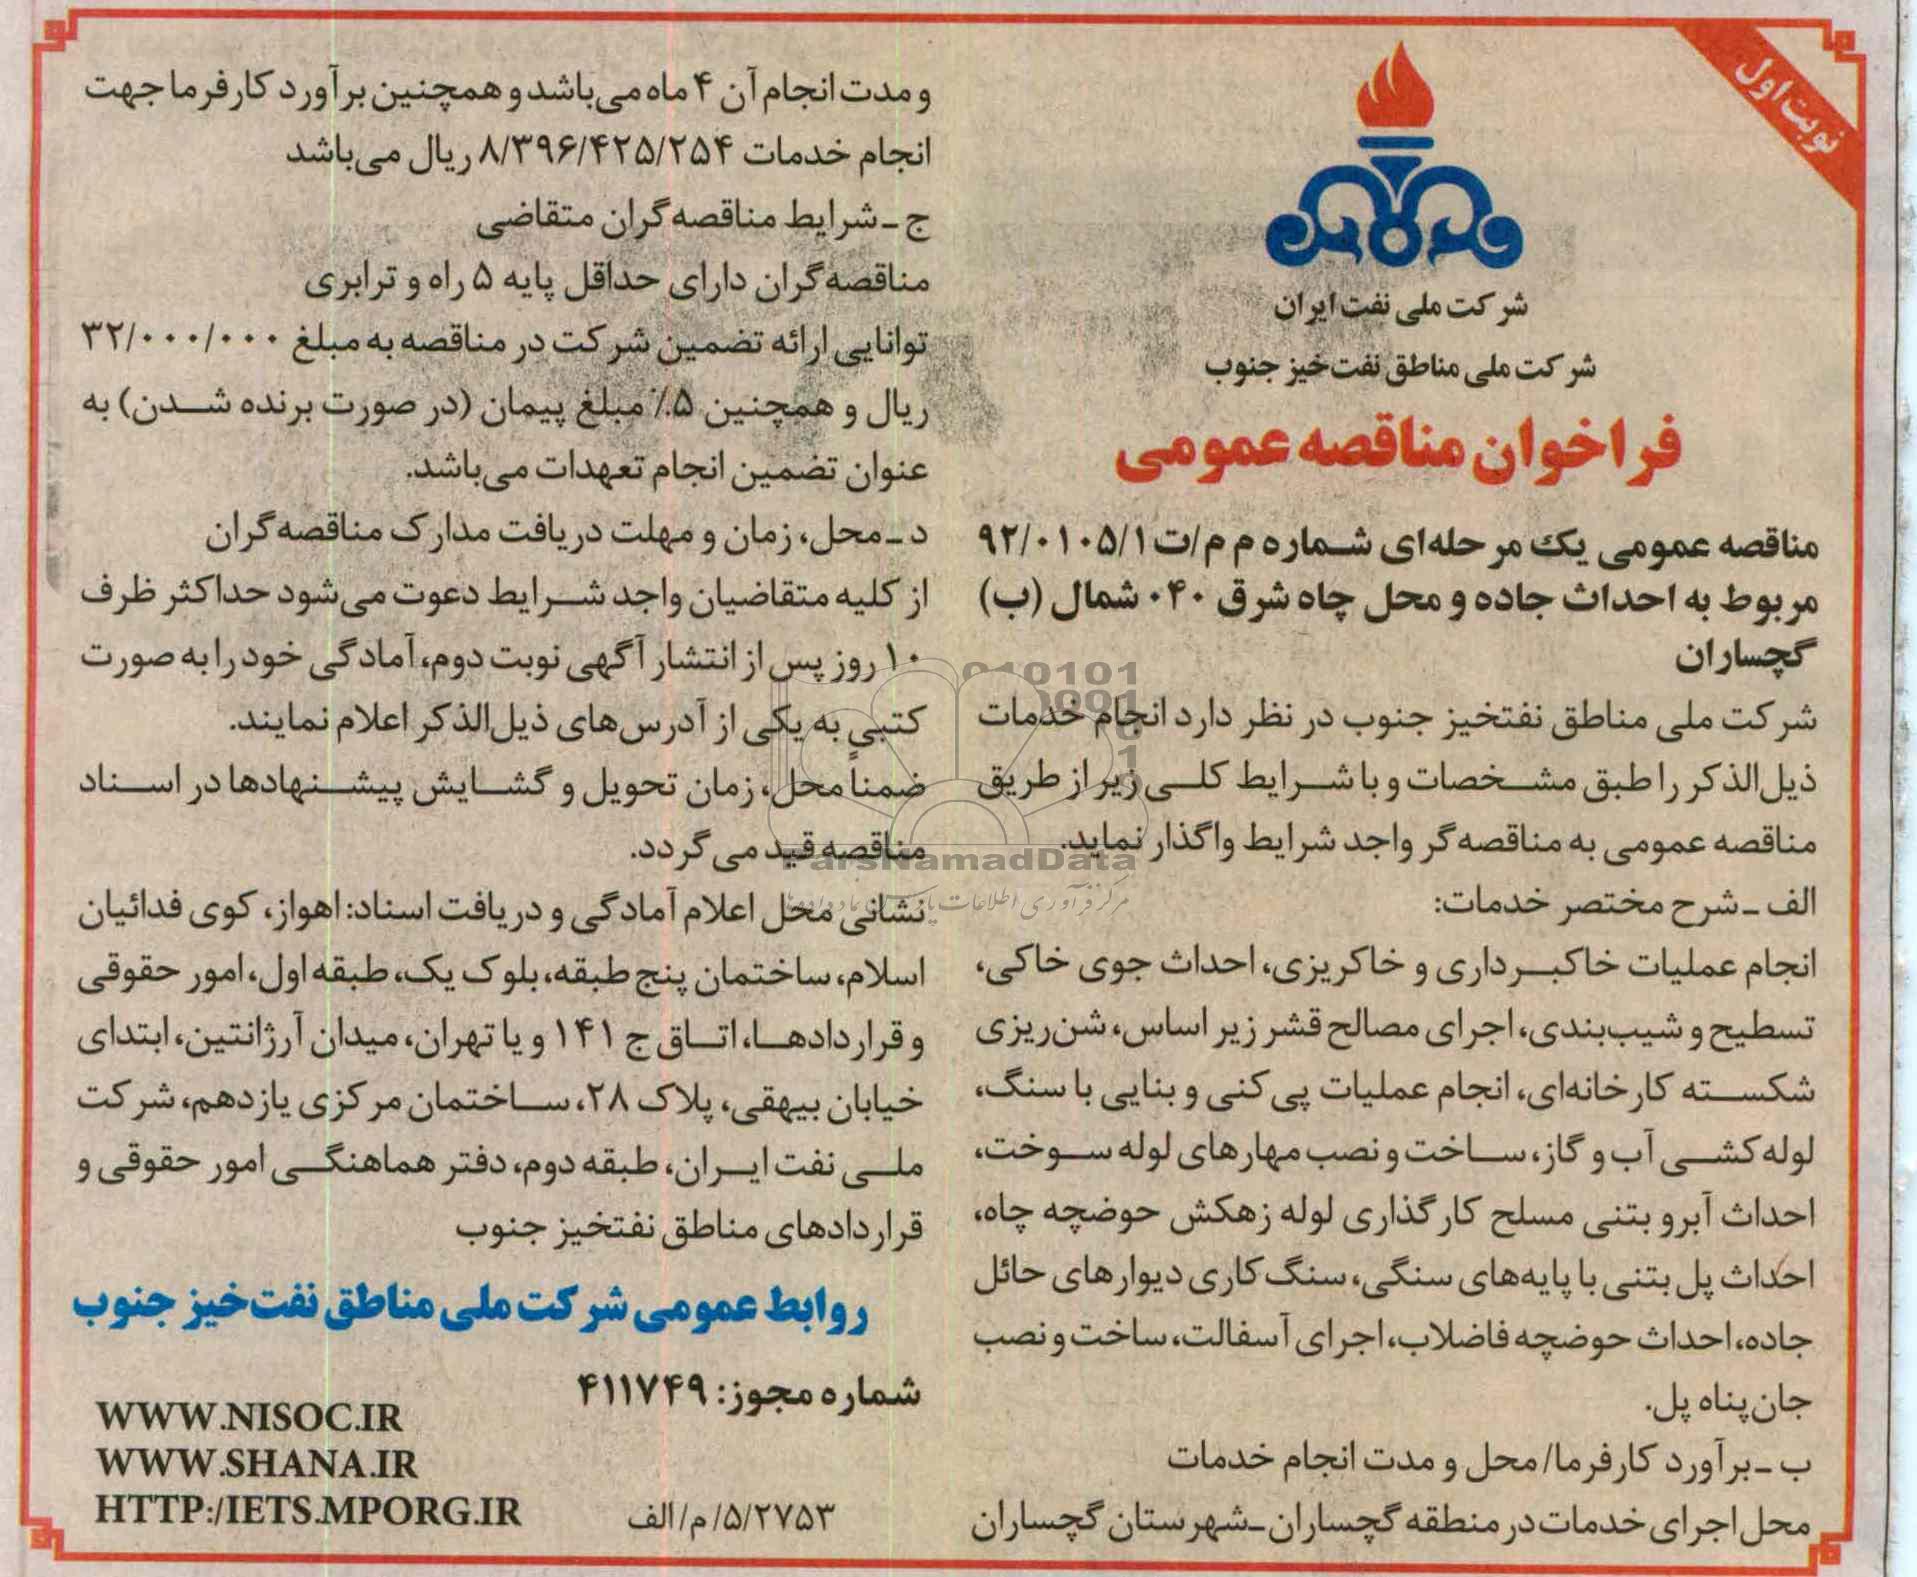 نوبت اول
شرکت ملی نفت ایران
شرکت ملی مناطق نفت‌خیز جنوب
فراخوان مناقصه عمومی
مناقصه عمومی یک مرحله‌ای شماره م م/ت۹۲/۰۱۰۵/۱
مربوط به احداث جاده و محل چاه شرق ۰۴۰ شمال (ب)
گچساران
شرکت ملی مناطق نفتخیز جنوب در نظر دارد انجام خدمات
ذیل‌الذکر را طبق مشخصات و با شرایط کلی زیر از طریق
مناقصه عمومی به مناقصه‌گر واجد شرایط واگذار نماید.
الف ـ شرح مختصر خدمات:
انجام عملیات خاکبرداری و خاکریزی، احداث جوی خاکی،
تسطیح و شیب‌بندی، اجرای مصالح قشر زیر اساس، شن‌ریزی
شکسته کارخانه‌ای، انجام عملیات پی‌کنی و بنایی با سنگ،
لوله‌کشی آب و گاز، ساخت و نصب مهارهای لوله سوخت،
احداث آبرو بتنی مسلح کارگذاری لوله زهکش حوضچه چاه،
احداث پل بتنی با پایه‌های سنگی، سنگ‌کاری دیوارهای حائل
جاده، احداث حوضچه فاضلاب، اجرای آسفالت، ساخت و نصب
جان‌پناه پل.
ب ـ برآورد کارفرما/ محل و مدت انجام خدمات
محل اجرای خدمات در منطقه گچساران ـ شهرستان گچساران
و مدت انجام آن ۴ ماه می‌باشد و همچنین برآورد کارفرما جهت
انجام خدمات ۸/۳۹۶/۴۲۵/۲۵۴ ریال می‌باشد
ج ـ شرایط مناقصه‌گران متقاضی
مناقصه‌گران دارای حداقل پایه ۵ راه و ترابری
توانایی ارائه تضمین شرکت در مناقصه به مبلغ ۳۲/۰۰۰/۰۰۰
ریال و همچنین ۵٪ مبلغ پیمان (در صورت برنده شدن) به
عنوان تضمین انجام تعهدات می‌باشد.
د ـ محل، زمان و مهلت دریافت مدارک مناقصه‌گران
از کلیه متقاضیان واجد شرایط دعوت می‌شود حداکثر ظرف
۱۰ روز پس از انتشار آگهی نوبت دوم، آمادگی خود را به صورت
کتبی به یکی از آدرس‌های ذیل‌الذکر اعلام نمایند.
ضمناً محل، زمان تحویل و گشایش پیشنهادها در اسناد
مناقصه قید می‌گردد.
نشانی محل اعلام آمادگی و دریافت اسناد: اهواز، کوی فدائیان
اسلام، ساختمان پنج طبقه، بلوک یک، طبقه اول، امور حقوقی
و قراردادها، اتاق ج ۱۴۱ و یا تهران، میدان آرژانتین، ابتدای
خیابان بیهقی، پلاک ۲۸، ساختمان مرکزی یازدهم، شرکت
ملی نفت ایران، طبقه دوم، دفتر هماهنگی امور حقوقی و
قراردادهای مناطق نفتخیز جنوب
روابط عمومی شرکت ملی مناطق نفت‌خیز جنوب
شماره مجوز: ۴۱۱۷۴۹
WWW.NISOC.IR
WWW.SHANA.IR
HTTP:/IETS.MPORG.IR
۵/۲۷۵۳/م/الف
ParsNamadData